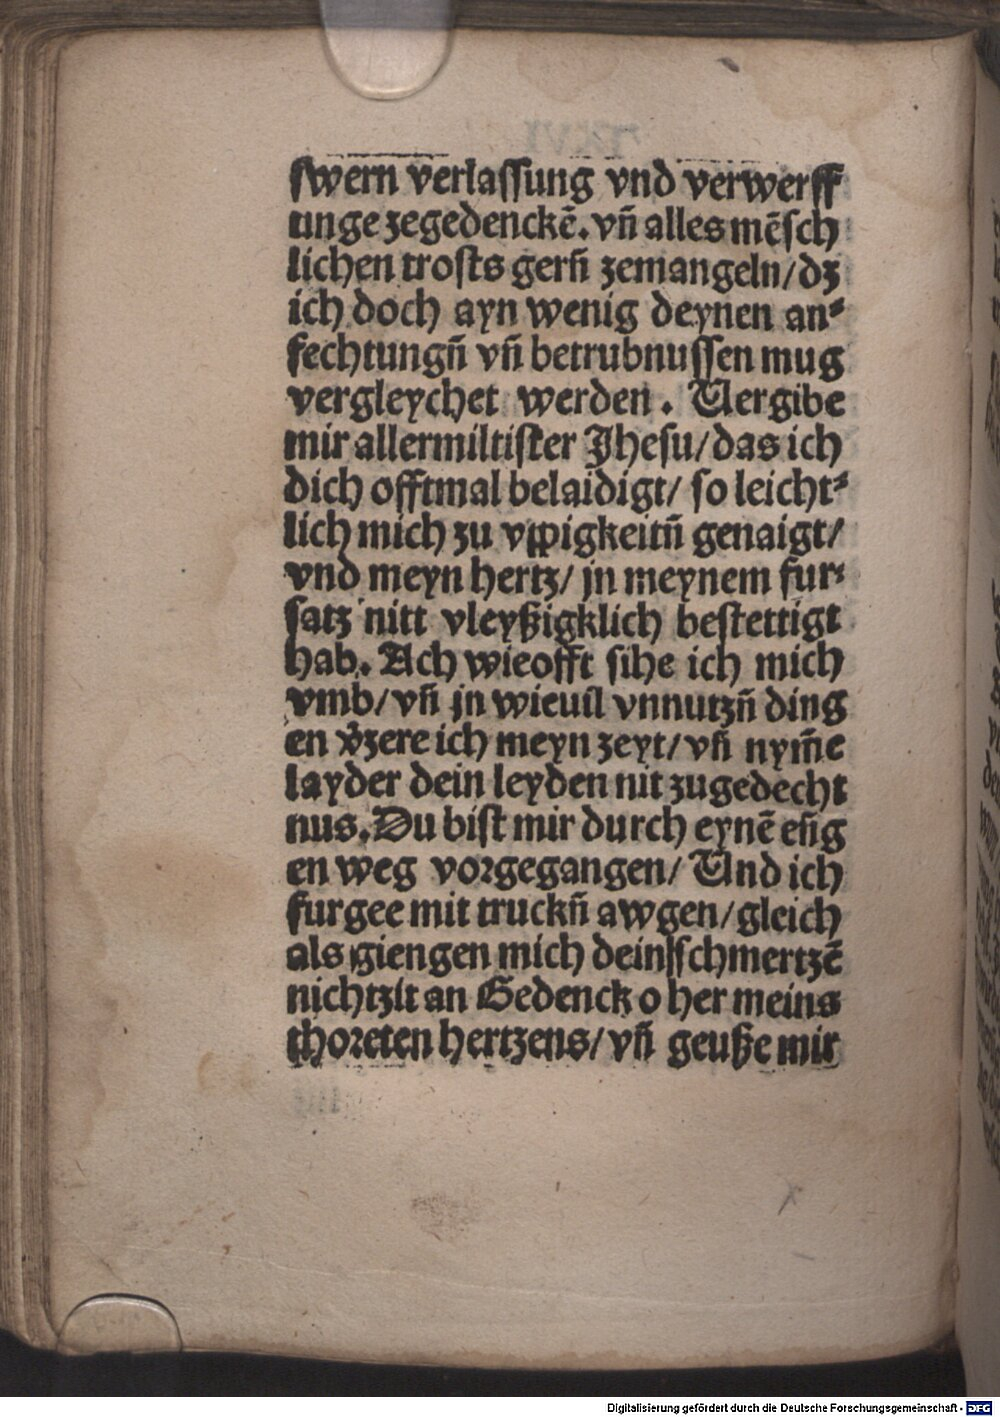 ſwern verlaſſung vnd verwerff
unge zegedenckē. vn̄ alles mēſch
lichen troſts gern̄ zemangeln/dz
ich doch ayn wenig deynen an⸗
fechtungn̄ vn̄ betrubnuſſen mug
vergleychet werden. Vergibe
mir allermiltiſter Jheſu/das ich
dich offtmal belaidigt/ ſo leicht⸗
lich mich zu vppigkeitn̄ genaigt/
vnd meyn hertz/ jn meynem fur⸗
ſatz nitt vleyßigklich beſtettigt
hab. Ach wieofft ſihe ich mich
vmb/vn̄ jn wieuil vnnutzn̄ ding
en v̄zere ich meyn zeyt/vn̄ nym̄e
layder dein leyden nit zugedecht
nus. Du biſt mir durch eynē en̄g
en weg vorgegangen/ Und ich
furgee mit truckn̄ awgen/gleich
als giengen mich deinſſchmertzē
nichtzit an Gedenck o her meins
thoreten hertzens/vn̄ geuße mir
Digitalisierung gefördert durch die Deutsche Forschungsgemeinschaft - DFG